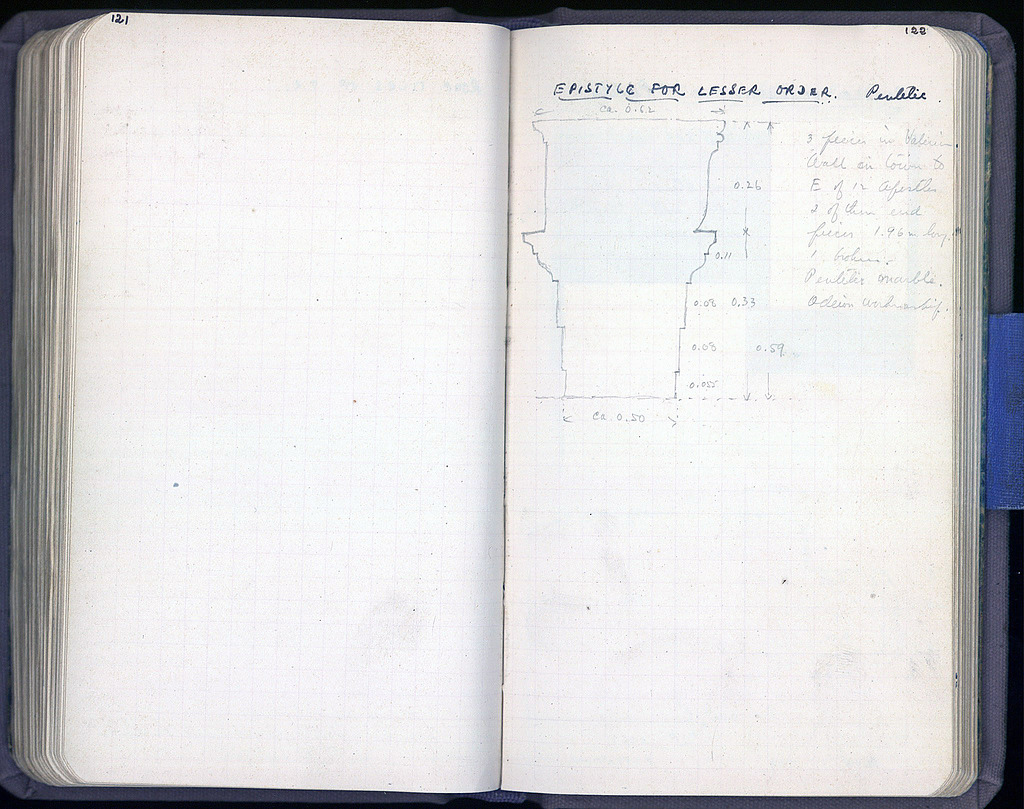 121
122
EPISTYLE FOR LESSER ORDER. Pentelic.
ca. 0.62
3 pieces in Valerian
Wall in town to
E of 12 Apostles
2 of them end
pieces 1.96m long.
1 broken.
Pentelic marble.
Odeion workmanship.
0.26
0.11
0.08 0.33
0.08 0.59
0.055
ca. 0.50